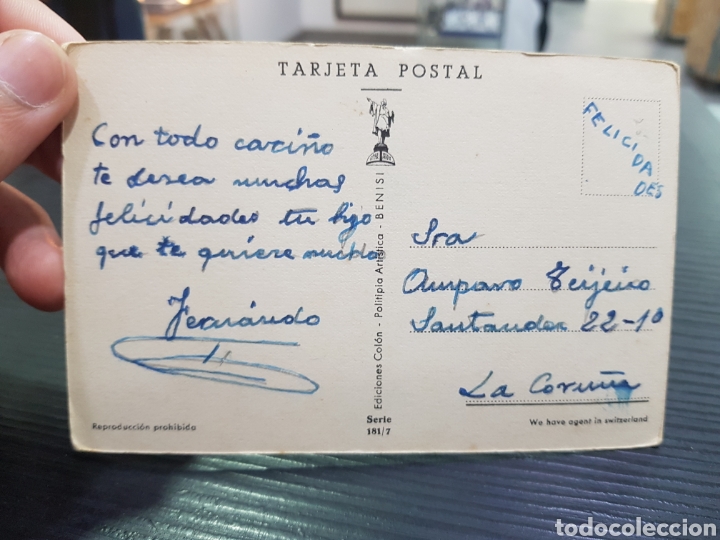 TARJETA POSTAL
FELICIDA
DES
Con todo cariño
te desea muchas
felicidades tu hijo
que te quiere mucho
Fernándo
Sra
Amparo Teijeiro
Santander 22-1º
La Coruña
Ediciones Colón - Politipia Artística - BENISI
Reproducción prohibida
Serie
181/7
We have agent in switzerland
todocoleccion